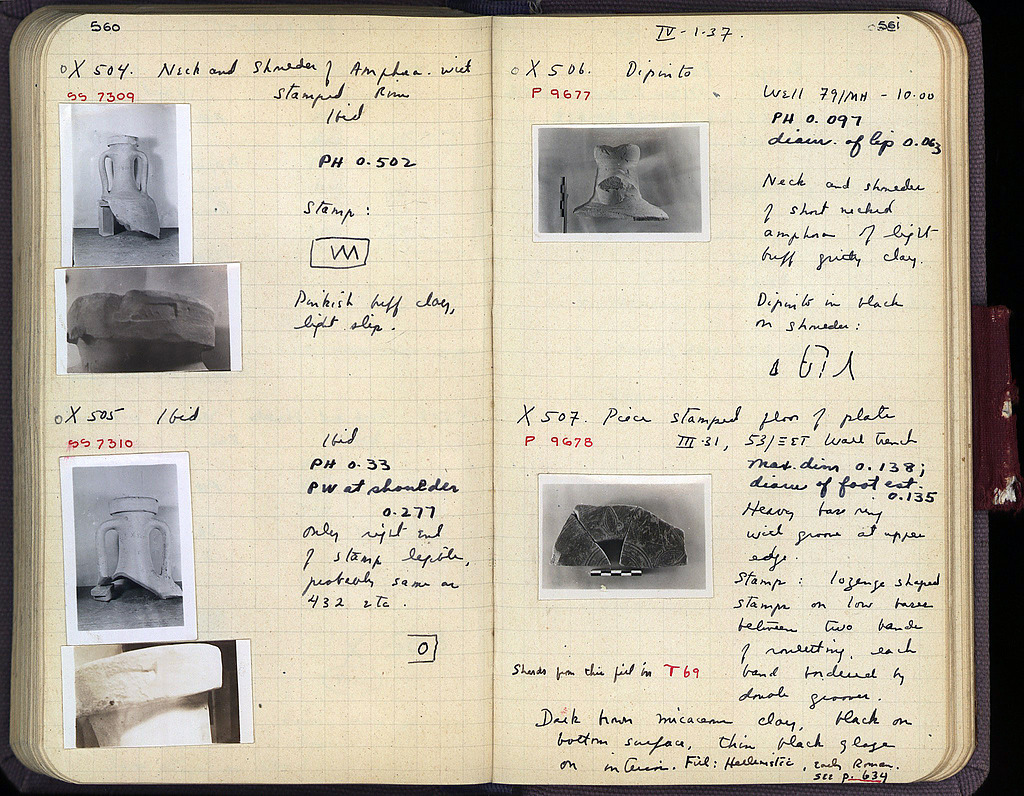 560
X 504. Neck and Shoulder of Amphora with
stamped Rim
SS 7309
Ibid
PH 0.502
Stamp:
Pinkish buff clay,
light slip.
X 505 Ibid
SS 7310
Ibid
PH 0.33
PW at shoulder
0.277
Only right end
of stamp legible,
probably same as
432 etc.
561
IV-1-37.
X 506. Dipinto
P 9677
Well 79/MH - 10.00
PH 0.097
diam. of lip 0.063
Neck and shoulder
of short necked
amphora of light
buff gritty clay.
Dipinto in black
on shoulder:
X 507. Piece stamped floor of plate
P 9678
III-31, 53/ΞΣΤ Wall trench
Max. dim 0.138;
diam of foot est.
0.135
Heavy base ring
with groove at upper
edge.
Stamp: lozenge shaped
stamps on low bases
between two bands
of rouletting, each
band bordered by
double grooves.
Sherds from this fill in T 69
Dark brown micaceous clay, black on
bottom surface, thin black glaze
on interior. Fill: Hellenistic, early Roman.
see p. 634